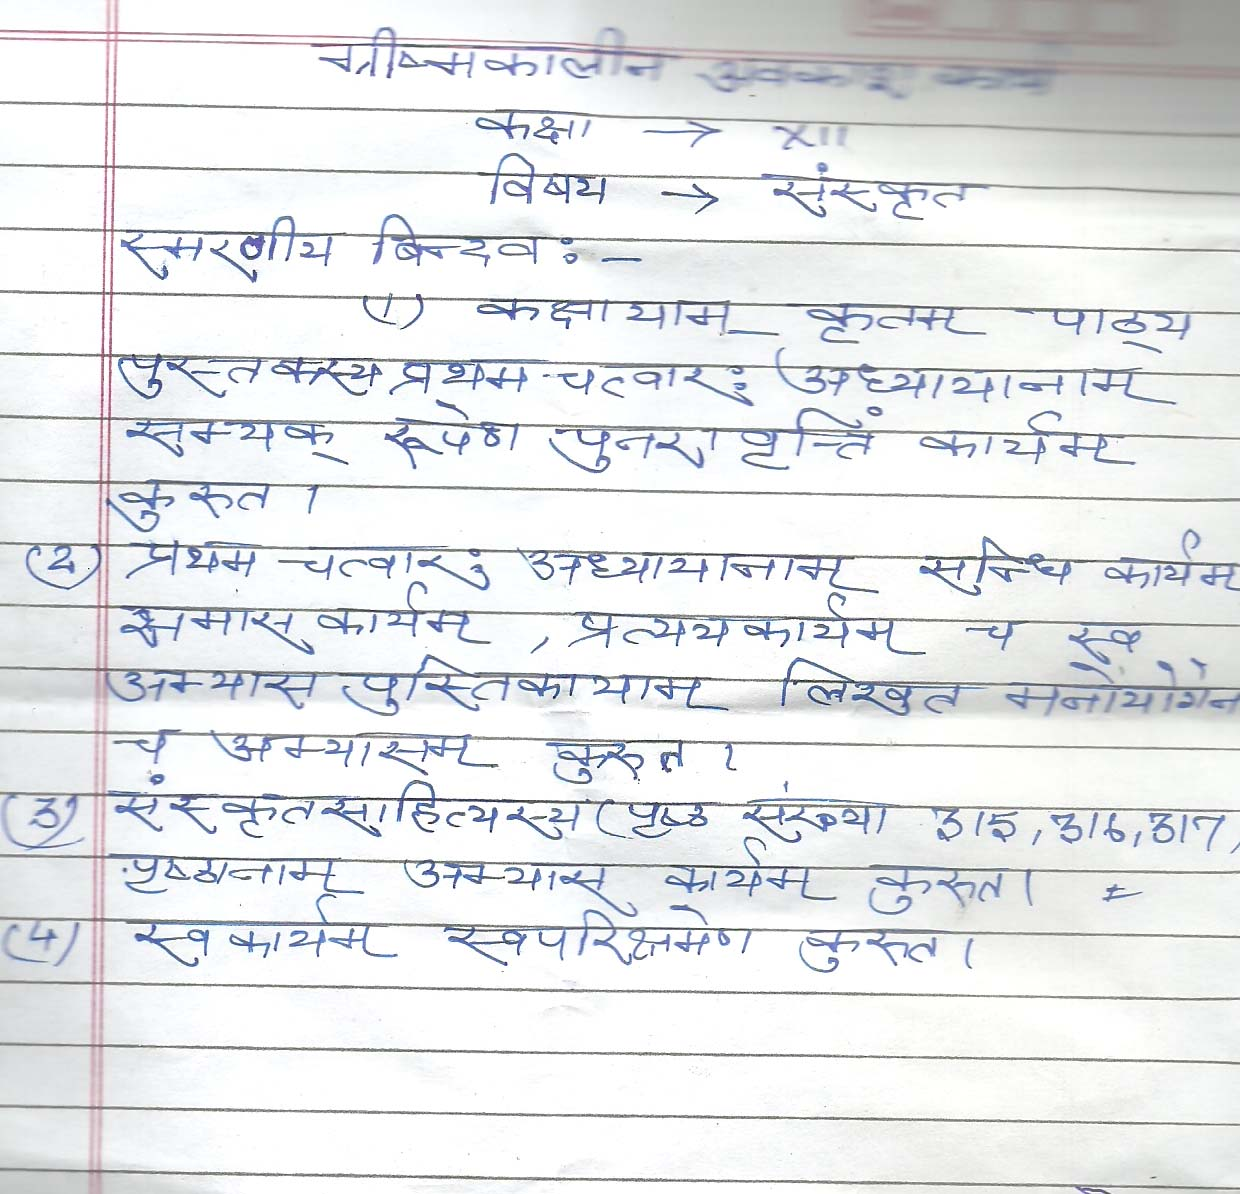 ग्रीष्मकालीन अवकाश कार्य
कक्षा → XII
विषय → संस्कृत
स्मरणीय बिन्दव : -
(1) कक्षायाम् कृतम पाठ्य
पुस्तकस्य प्रथम चत्वार: अध्यायानाम्
सम्यक् रूपेण पुनरावृत्तिं कार्यम्
कुरुत ।
(2) प्रथम चत्वार: अध्यायानाम् सन्धि कार्यम
समास कार्यम्, प्रत्ययकार्यम् च स्व
अभ्यास पुस्तिकायाम् लिखत मनोयोगेन
च अभ्यासम् कुरुत ।
(3) संस्कृतसाहित्यस्य (पृष्ठ संख्या 315, 316, 317,
पृष्ठानाम् अभ्यास कार्यम् कुरुत ।
(4) स्वकार्यम् स्वपरिक्षमेण कुरुत ।